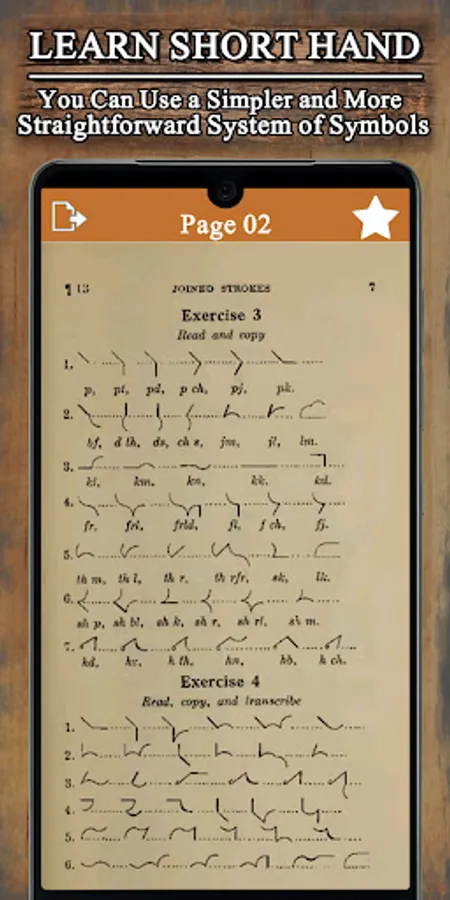 LEARN SHORT HAND
You Can Use a Simpler and More
Straightforward System of Symbols
Page 02
¶ 13 JOINED STROKES 7
Exercise 3
Read and copy
1.
p, pt, pd, p ch, pj, pk.
2.
bf, d th, ds, ch s, jm, jl, lm.
3.
kl, km, kn, kk, kd.
4.
fr, frl, frld, fl, f ch, fj.
5.
th m, th l, th r, th rfr, sk, lk.
6.
sh p, sh bl, sh k, sh r, sh rl, sh m.
7.
hd, hv, h th, hn, hb, h ch.
Exercise 4
Read, copy, and transcribe
1.
2.
3.
4.
5.
6.